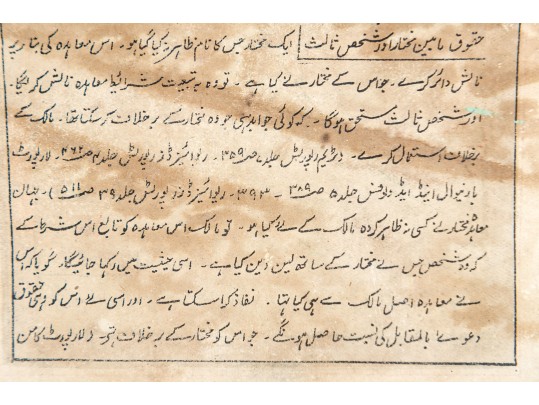 حقوق مابین مختار اور شخص ثالث ایک مختار جس کا نام ظاہر نہ کیا گیا ہو۔ اس معاہدہ کی بنا پر
نالش دائر کرے۔ جو اس کے مختار نے کیا ہے۔ تو وہ بہ تبعیت شرائط معاہدہ نالش کریگا۔
اور شخص ثالث مستحق ہوگا۔ کہ کوئی جوابدہی جو وہ مختار کے برخلاف کر سکتا تھا۔ مالک کے
برخلاف استعمال کرے۔ رپورٹس جلد ۷ صہ ۳۵۹۔ ریوائیزڈ رپورٹس جلد صہ ۴۶۲۔ لارپورٹ
اینڈ جلد ۵ صہ ۳۸۹۔ ۳۹۳۔ ریوائیزڈ رپورٹس جلد ۳۹ صہ ۵۱۱)۔ جہاں
معاہدہ مختار نے کسی نہ ظاہر کردہ مالک کے لئے کیا ہو۔ تو مالک اس معاہدہ کو تابع اس شرط کے
کہ وہ شخص جس نے مختار کے ساتھ لین دین کیا ہے۔ اسی حیثیت میں رکھا جائیگا۔ گویا کہ اس
نے معاہدہ اصل مالک سے ہی کیا تھا۔ نفاذ کرا سکتا ہے۔ اور اسی لئے اس کو وہی حقوق
دعوے بالمقابل کی نسبت حاصل ہونگے۔ جو اس کو مختار کے برخلاف تھے۔ (لارپورٹ کامن